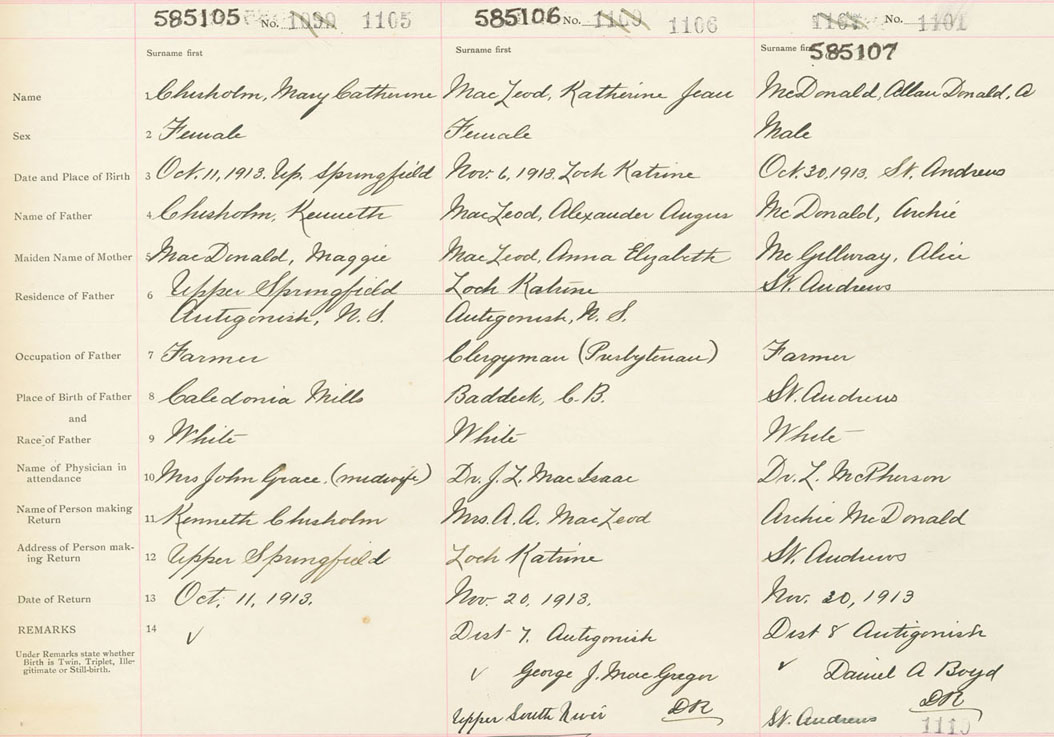 585105 No. 1105 585106 No. 1106 No. 1101
Surname first Surname first Surname first 585107
Name 1 Chisholm, Mary Catherine MacLeod, Katherine Jean McDonald, Allan Donald, A
Sex 2 Female Female Male
Date and Place of Birth 3 Oct. 11, 1913. Up. Springfield Nov. 6, 1913. Loch Katrine Oct. 30, 1913, St. Andrews
Name of Father 4 Chisholm, Kenneth MacLeod, Alexander Angus McDonald, Archie
Maiden Name of Mother 5 MacDonald, Maggie MacLeod, Anna Elizabeth McGillivray, Alice
Residence of Father 6 Upper Springfield Loch Katrine St. Andrews
Antigonish, N.S. Antigonish, N.S.
Occupation of Father 7 Farmer Clergyman (Presbyterian) Farmer
Place of Birth of Father 8 Caledonia Mills Baddeck, C.B. St. Andrews
and
Race of Father 9 White White White
Name of Physician in
attendance 10 Mrs John Grace, (midwife) Dr. J. L. MacIsaac Dr. L. McPherson
Name of Person making
Return 11 Kenneth Chisholm Mrs. A. A. MacLeod Archie McDonald
Address of Person mak-
ing Return 12 Upper Springfield Loch Katrine St. Andrews
Date of Return 13 Oct. 11, 1913. Nov. 20, 1913. Nov. 20, 1913
REMARKS 14 Dist 7. Antigonish Dist 8 Antigonish
Under Remarks state whether
Birth is Twin, Triplet, Ille-
gitimate or Still-birth.
George J. MacGregor Daniel A Boyd
Upper South River DR St. Andrews DR